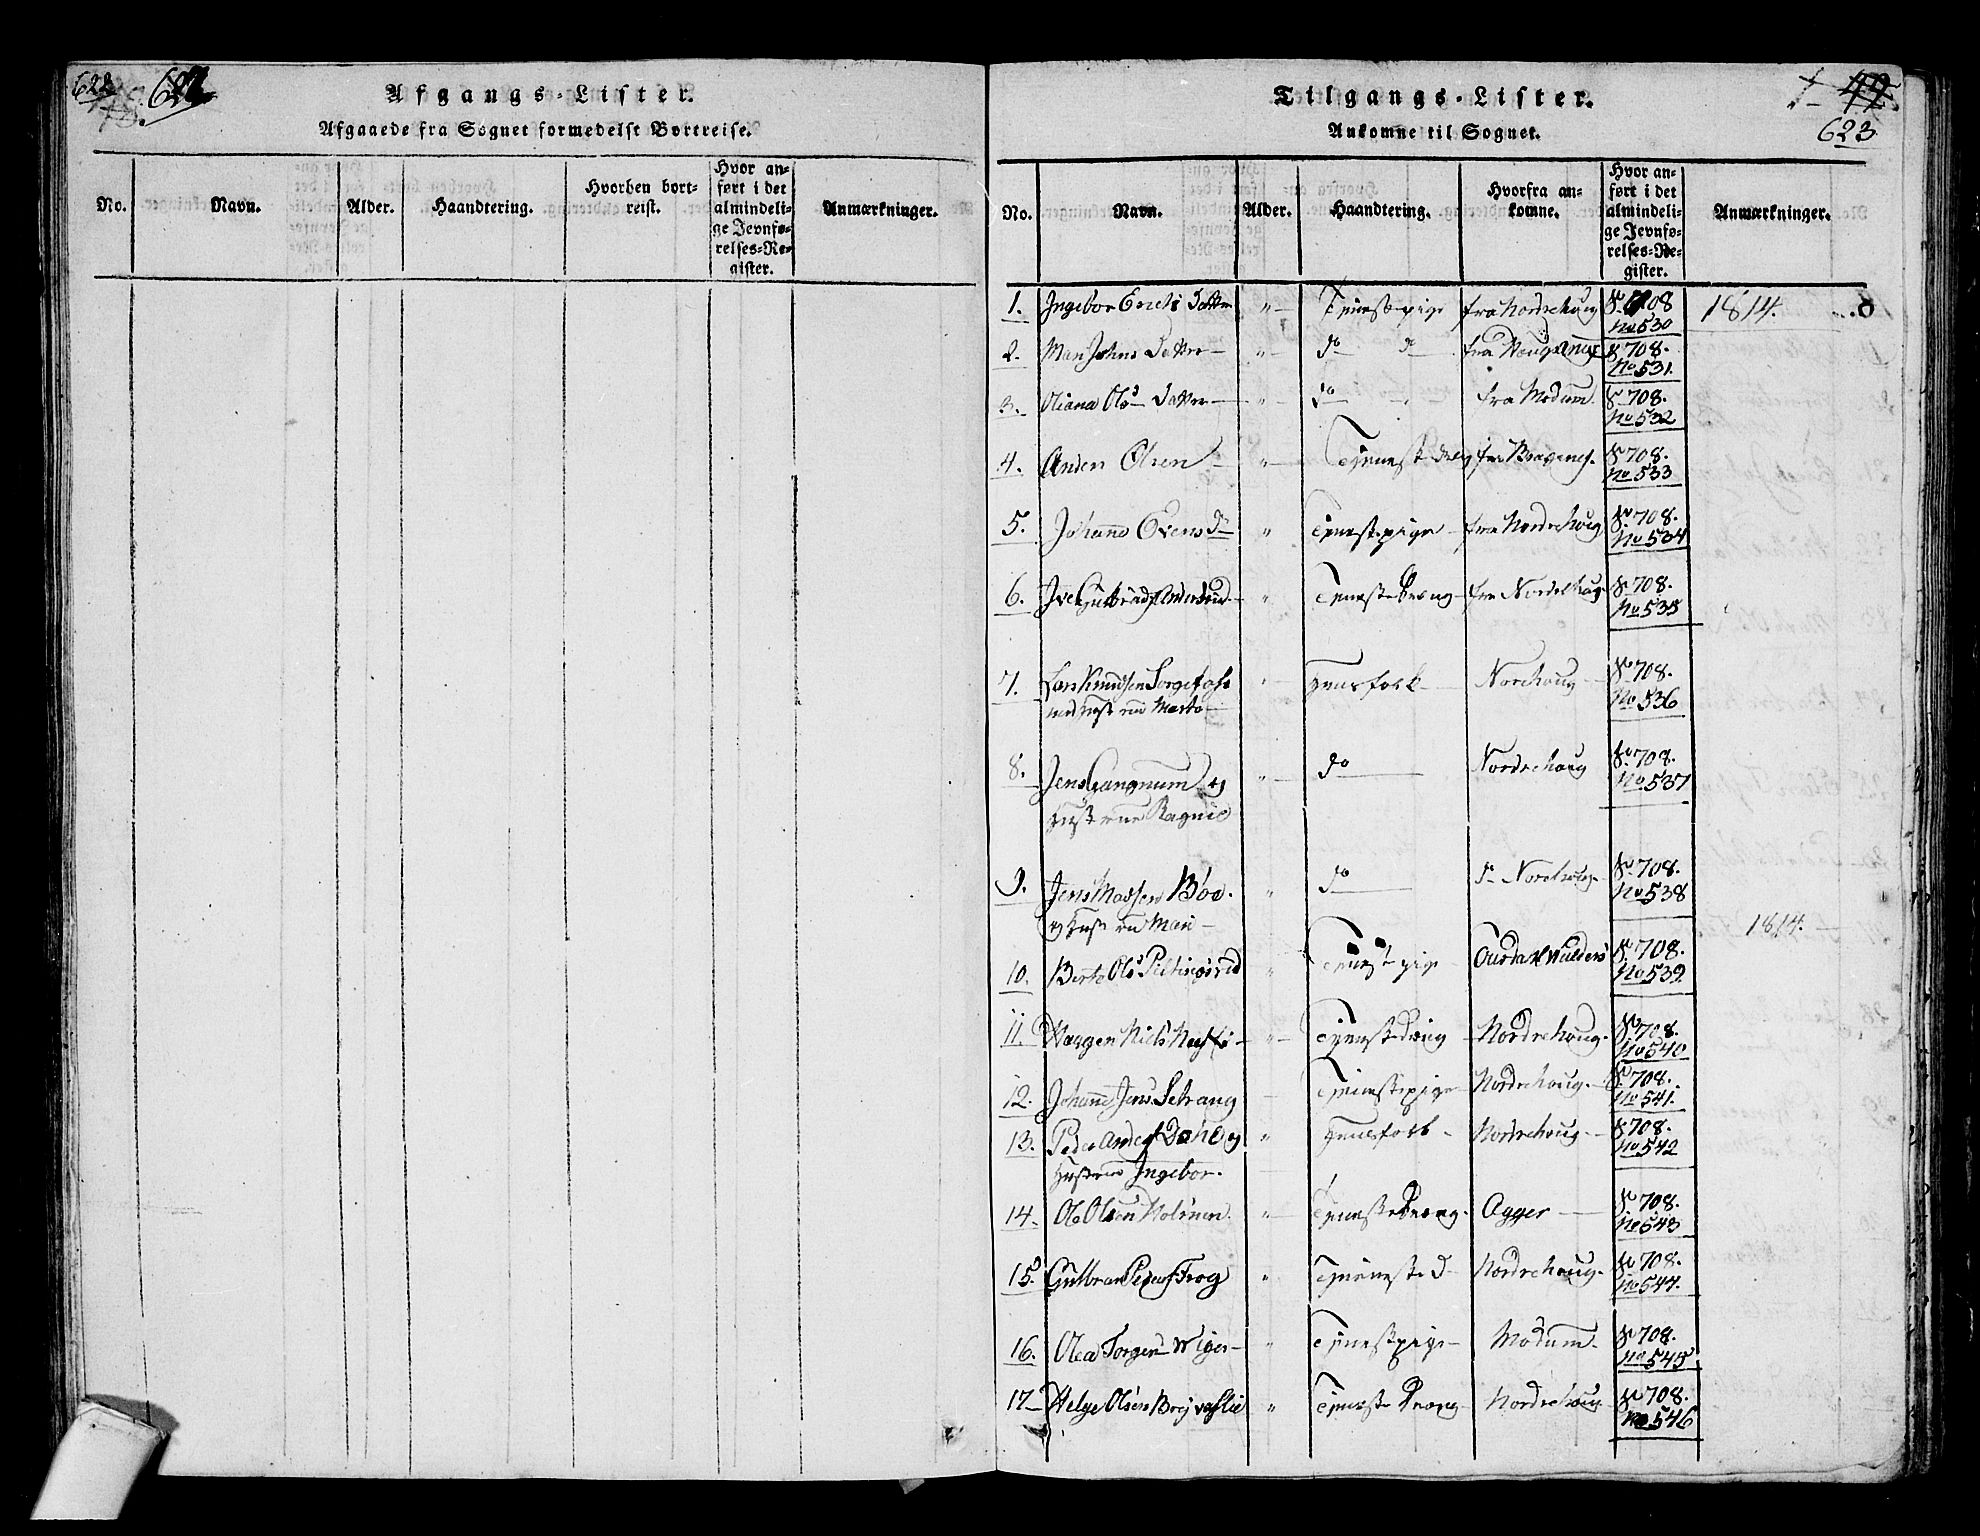 622
Afgangs-Lister.
Afgaaede fra Sognet formedelst Bortreise.
No.
Navn.
Alder.
Haandtering.
Hvorhen bort-
reist.
Hvor an-
ført i det
almindeli-
ge Jevnfø-
relses-Re-
gister.
Anmærkninger.
Tilgangs-Lister.
Ankomne til Sognet.
623
No.
Navn.
Alder.
Haandtering.
Hvorfra an-
komne.
Hvor an-
ført i det
almindeli-
ge Jevnfø-
relses-Re-
gister.
Anmærkninger.
1. Ingebor Erichs Datter " Tjenestepige fra Nordrehoug F. 708 No 530 1814.
2. Mari Johns Datter " do do fra F 708. No 531.
3. Oliana Ols Datter " do " fra Modum. F 708. No 532
4. Anders Olsen " Tjeneste fra Bragenes. F 708. No 533
5. Johanne Evensd " Tjenestepige fra Nordrehoug F. 708. No 534
6. " Tjenestedreng fra Nordrehoug F 708. No 535
7. Lars Knudsen " Huusfolk Norehoug F 708. No 536
med Marte
8. Jens Gangnum og " do Nordrehoug F. 708. No 537
Hustrue Ragnil
9. Jens Madsen Böe. " do Norehoug F. 708. No 538
og Mari 1814.
10. Berte Ols " Tjenestepige F. 708. No 539.
11. Haagen Niels " Tjenestedreng Nordrehoug. F 708. No 540
12. Johanne Jens. Setrang Tjenestepige Nordrehoug. F. 708. No 541.
13. Peder Anders Dahl og " Huusfolk Nordrehoug F 708. No 542
Hustrue Ingebor.
14. Ole Olsen Holmen. " Tjenestedreng. Agger F 708. No 543
15. Gulbran Peders Frog " Tjeneste D Nordrehoug. F 708. No 544.
16. Olea Torgers " Tjenestepige Modum. F 708. No 545
17. Helge Olsen " Tjenestedreng Nordrehoug F 708. No 546